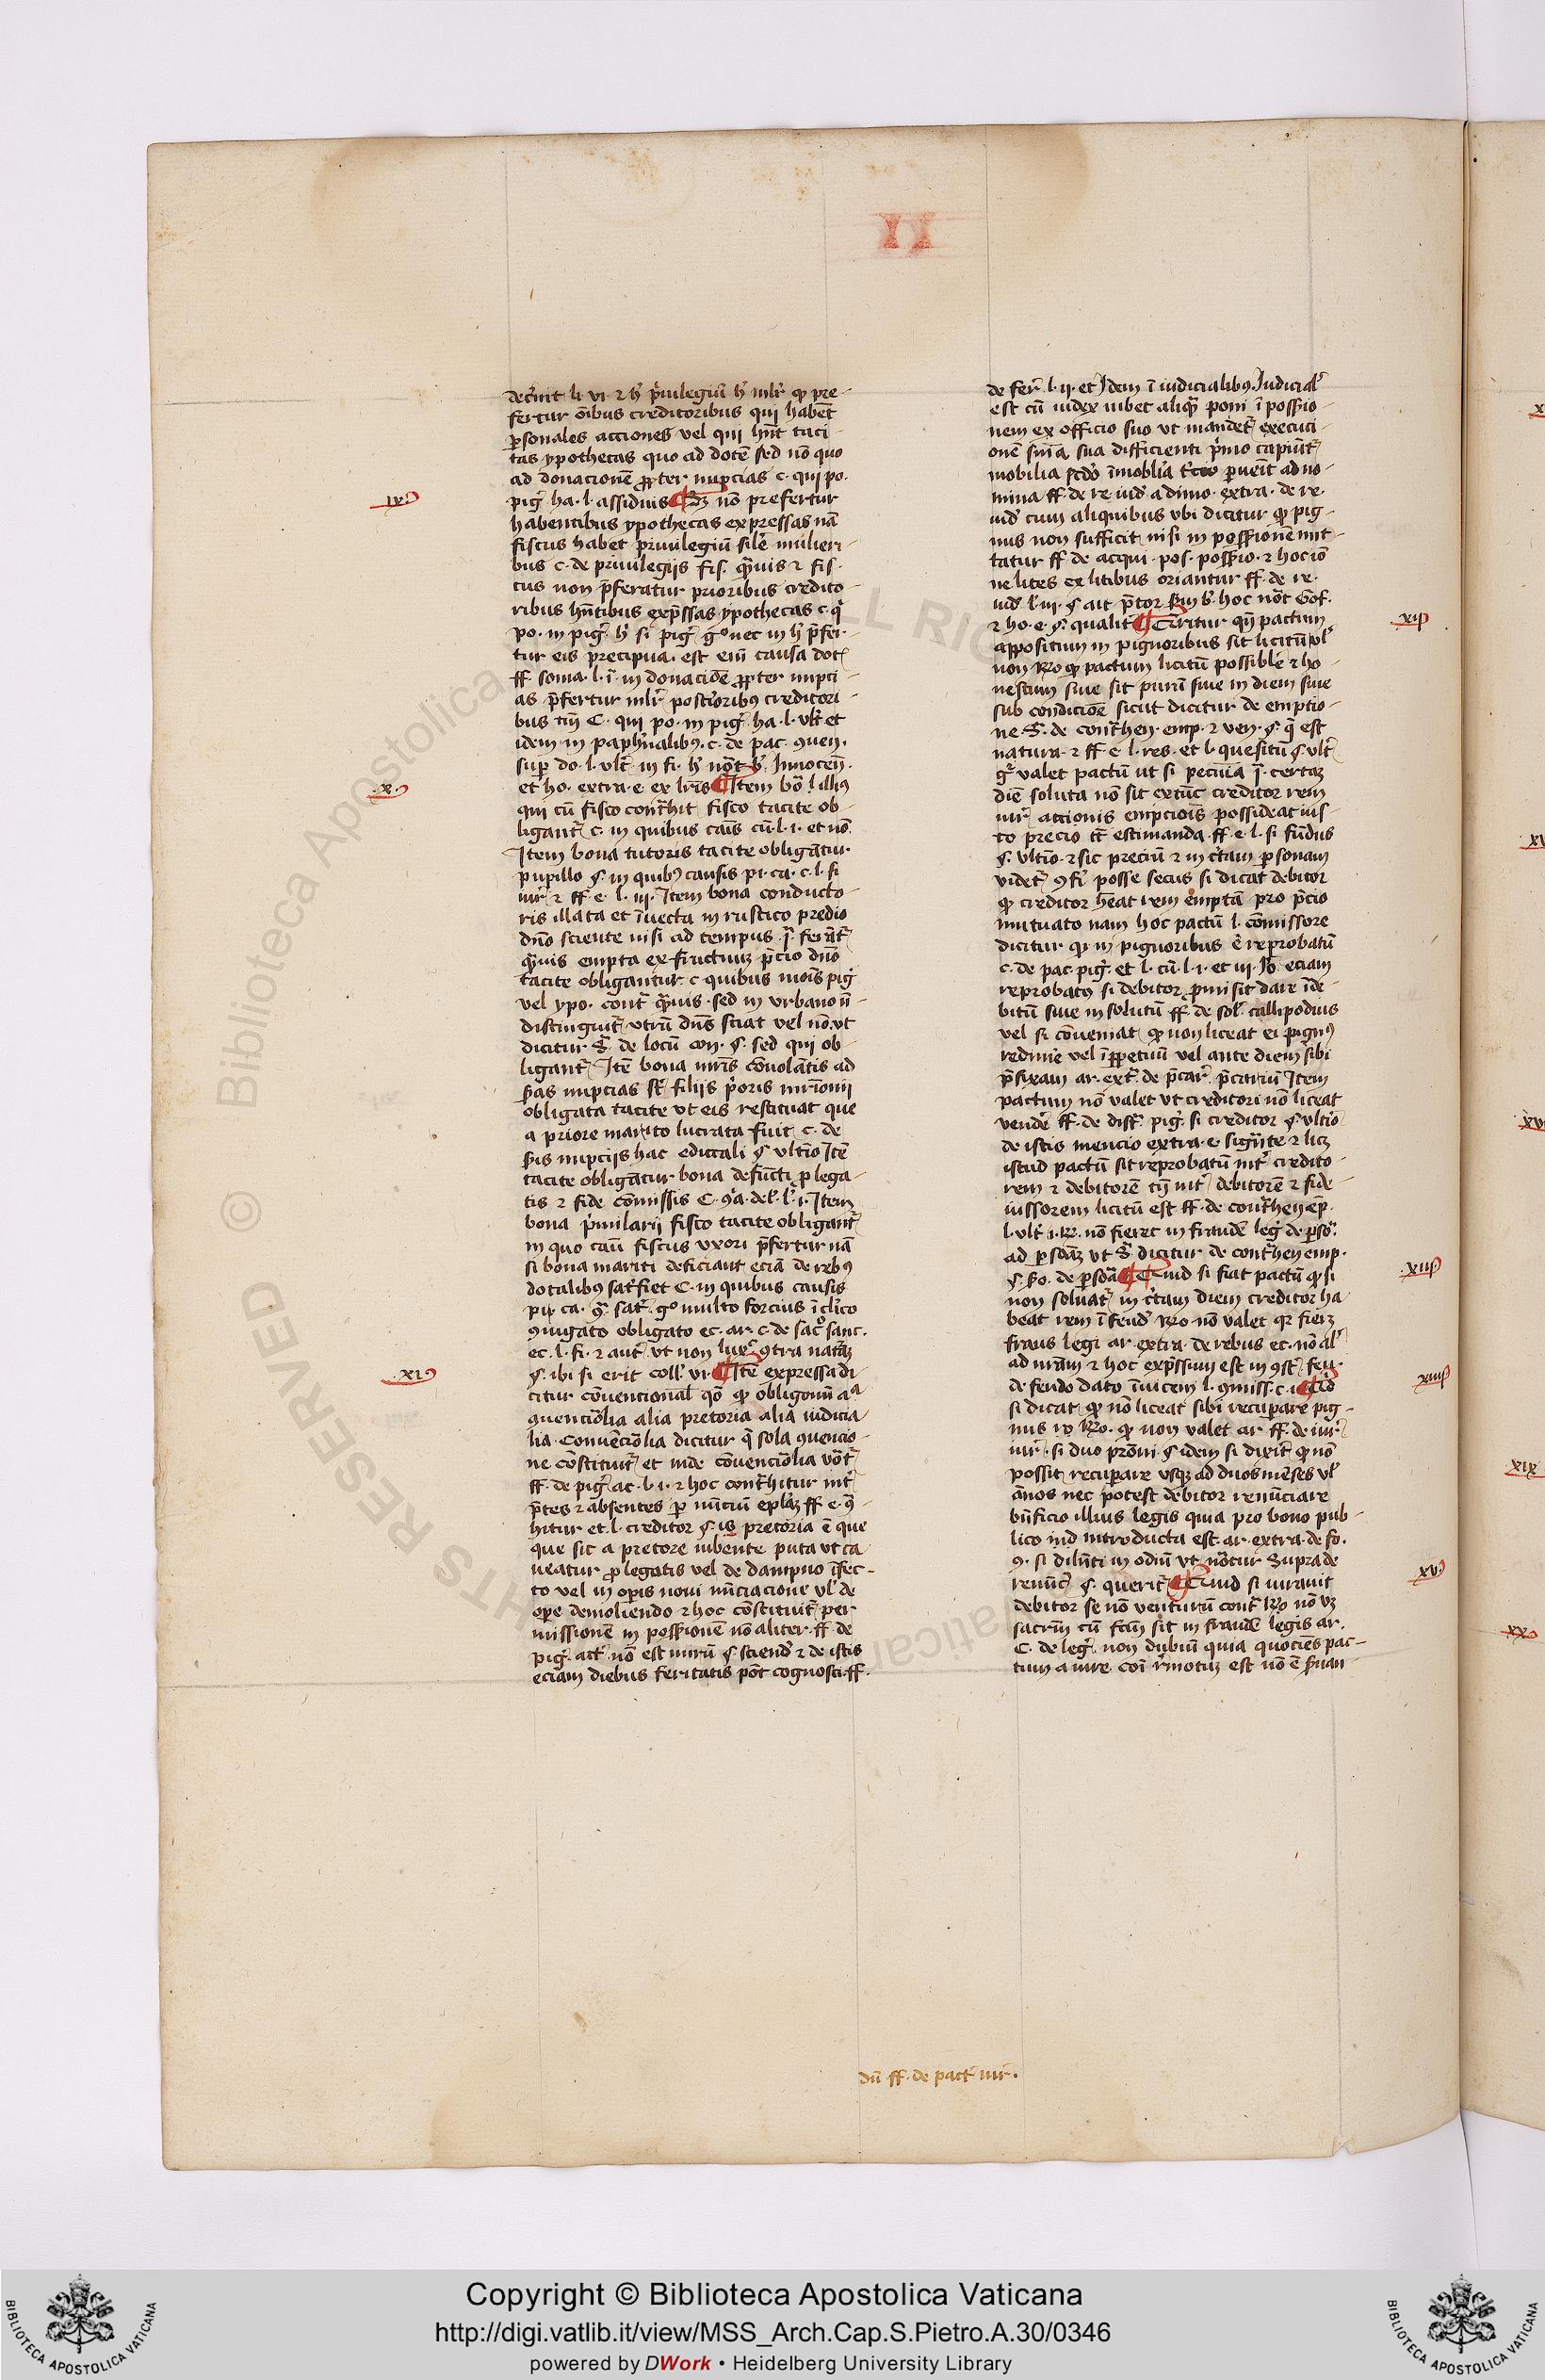 II
dec̄nit li vi ⁊ hͦ p̄uilegiū hʒ mlr̄ qp pre-
fertur oībus creditoribus qui habēt
ꝑsonales acciones vel qui hn̄t taci-
tas ypothecas quo ad dotē sed nō quo
ad donacionē ꝓpter nupcias c. qui po.
piḡ ha. l. assiduis ¶ Sʒ nō prefertur
habentibus ypothecas expressas nā
fiscus habet priuilegiū sil'e mulieri-
bus c. de priuilegijs fis. q̄uis ⁊ fis-
cus non p̄feratur prioribus credito-
ribus hn̄tibus exp̄ssas ypothecas c. q̄
po. in piḡ. hʒ si piḡ gͦ nec in hͦ p̄fer-
tur eis precipua. est em̄ causa dot̄
ff solu̅a. l. ī. in donaciōe ꝓpter nupci-
as p̄fertur mlr̄ post̄ioribꝰ creditori-
bus tn̄ C. qui po. in piḡ ha. l. vlt̄ et
idem in paph̄nalibꝰ. c. de pac. ꝯuen.
suꝑ do. l. vlt̄ in fi. hͦ nōt bͦ. Innocen̄.
et ho. extra. e. ex lr̄is ¶ Item bōa illiꝰ
qui cū fisco contͬhit fisco tacite ob-
ligant̄ c. in quibus cāis cū. l. i. et nō.
Item bona tutoris tacite obligātur
pupillo §. in quibꝰ causis pi. ca. c. l. si
iur̄ ⁊ ff. e. l. iii. Item bona conducto-
ris illata et īuecta in rustico predio
dn̄o sciente nisi ad tempus ī. ferāt̄
q̄uis empta ex fructuum p̄cio dn̄o
tacite obligantur c quibus mōis piḡ
vel ypo. cont̄ q̄uis. sed in vrbano n̄-
distinguit̄ vtrū dn̄s sciat vel nō. vt
dicitur S̄. de locū con. §. sed qui ob-
ligant̄ Itē bona mr̄is conuolātis ad
s̄as nupcias st̄ filijs p̄oris mr̄ionij
obligata tacite vt eis restituat que
a priore marito lucrata fuit c. de
s̄is nupcijs hac edictali §. vltīo Itē
tacite obligātur bona defūcti ꝓ lega-
tis ⁊ fide cōmissis C. ꝯ̄a. del̄. l. i. Item
bona p̄milarij fisco tacite obligant̄
in quo cāu fiscus vxori p̄fertur nā
si bona mariti deficiant eciā de rebꝰ
dotalibꝰ satͬfiet C. in quibus causis
pi ca. §. satͬ. gͦ multo forcius ī cl̄ico
ꝯiugato obligato ec. ar. c. de sacͦ sanc.
ec. l. fi. ⁊ aut̄ vt non lux̄ ꝯtra natāʒ
§. ibi si erit coll̄. vi. ¶ Itē expressa di
citur cōuencional̄ qō qp obligonū aª
ꝯuenciōlia alia pretoria alia iudicia-
lia. Conuēciōlia dicitur q̄ sola ꝯuencio-
ne cōstituit̄ et inde cōuenciōlia vōt̄
ff. de piḡ ac. l. i. ⁊ hoc contͬhitur int̄
p̄tes ⁊ absentes ꝑ nūciū epl̄aʒ ff. e. ꝯ̄-
hitur et. l. creditor §. is pretoria ē que
que sit a pretore iubente puta vt ca
ueatur ꝓ legatis vel de dampno īfec-
to vel in oꝑis noui nūciacione vl̄ de
oꝑe demoliendo ⁊ hoc cōstituit̄ per
missionē in possͥionē nō aliter. ff. de
piḡ. act̄ nō est mirū §. sciend̄ ⁊ de istis
eciam diebus feritatis pōt cognosci ff.
de fer̄ l. ii. et Idem ī iudicialibꝰ. Iudicial̄
est cū iudex iubet aliq̄ poni ī possͥio-
nem ex officio suo vt mandet̄ execuci-
onē sn̄ia sua difficienti p̄imo capiūt̄
mobilia scd̄o īmobl̄ia t̄cio ꝑueīt ad no-
mina ff. de re. iud̄ a dimo. extra. de re.
iud̄ cum aliquibus vbi dicitur qp pig-
nus non sufficit nisi in possͥionē mit-
tatur ff. de acqui. pos. possͥio. ⁊ hoc iō
ne lites ex litibus oriantur ff. de re.
iud̄ l̄. iii. §. ait p̄tor km̄ bͦ. hoc nōt Gof.
⁊ ho. e. §. qualit̄ ¶ Queritur qn̄ pactum
appositum in pignoribus sit licitū vl̄
non Rͦ qp pactum licitū possibile ⁊ ho-
nestum siue sit purū siue in diem siue
sub condiciōe sicut dicitur de emptio-
ne S̄. de contͬhen. emp. ⁊ ven. §. q̄ est
natura. ⁊ ff. e. l. res. et l. quesitū §. vlt̄
gͦ valet pactū ut si pecunia ī. certaʒ
diē soluta nō sit extūc creditor rem
iur̄ accionis empciōis possideat ius-
to precio tc̄ estimanda ff. e. l. si fūdus
§. vltīo. ⁊ sic preciū ⁊ in c̄tam ꝑsonam
videt̄ ꝯfr̄i posse secus si dicat debitor
qp creditor hēat rem emptā pro p̄cio
mutuato nam hoc pactū l. cōmissore
dicitur qp in pignoribus ē reprobatū
c. de pac. piḡ. et l. cū. l. i. et iii. ſ̄ eciam
reprobatꝰ si debitor ꝓmisit dare īde-
bitū siue in solutū ff. de sol̄. callipodius
vel si cōueniat qp non liceat ei pignꝰ
redime vel īꝑpetuū vel ante diem sibi
p̄fixam ar. ext̄. de p̄car̄ p̄cariū Item
pactum nō valet vt creditori nō liceat
vende ff. de dist̄. piḡ. si creditor §. vltīo
de istis mencio extra. e. signn̄te ⁊ licʒ
istud pactū sit reprobatū int̄ credito-
rem ⁊ debitorē tn̄ int̄ debitorē ⁊ fide-
iussorem licitū est ff. de contͬhen ep̄.
l. vlt̄ i. R. nō fieret in fraudē leḡ de ꝑso.
ad ꝑsōāʒ vt S̄. dicitur de contͬhen emp.
§. s̄o. de ꝑsōā ¶ Quid si fiat pactū qp si
non soluat̄ in c̄tam diem creditor ha
beat rem ī feud̄ Rͦ nō valet qr fierʒ
fraus legi ar. extra. de rebus ec. nō al̄
ad nr̄am ⁊ hoc exp̄ssum est in ꝯst̄. feu.
de feudo dato īuicem l. ꝯmiss. c. i. ¶ Qd
si dicat qp nō liceat sibi recuꝑare pig-
nus Rͦ. qp non valet ar ff. de iur̄
iur̄. si duo prōni §. idem si dixit̄ qp nō
possit recuꝑare vsqʒ ad duos mēses vl̄
ānos nec potest debitor renūciare
bn̄ficio illius legis quia pro bono pub-
lico ind introducta est. ar. extra. de fo.
ꝯ. si dilīti in odiū vt nōtur Supra de
renūc̄ §. querit̄ ¶ Quid si iurauit
debitor se nō venturū cont̄ Rͦ nō vʒ
sacrm̄ cū fc̄m sit in fraudē legis ar.
C. de leḡ. non dubiū quia quociēs pac-
tum a iure coī rͥmotuʒ est nō ē s̄uan-
dū ff. de pact̄ iur̄.
ix
x
xi
xii
xiii
xiiii
xv
xix
xx
© Biblioteca Apostolica Vaticana ALL RIGHTS RESERVED
BIBLIOTECA APOSTOLICA VATICANA
Copyright © Biblioteca Apostolica Vaticana
http://digi.vatlib.it/view/MSS_Arch.Cap.S.Pietro.A.30/0346
powered by DWork • Heidelberg University Library
BIBLIOTECA APOSTOLICA VATICANA